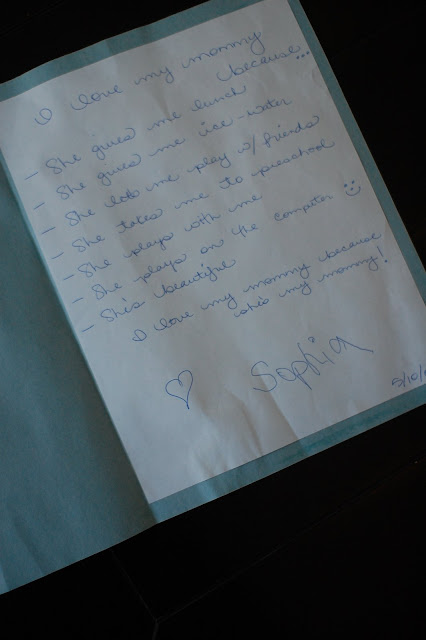 I love my mommy
because...
- She gives me lunch
- She gives me ice-water
- She lets me play w/ friends
- She takes me to preschool
- She plays with me
- She plays on the computer ☺
- She's beautiful
I love my mommy because
she's my mommy!
♡ Sophia
5/10/